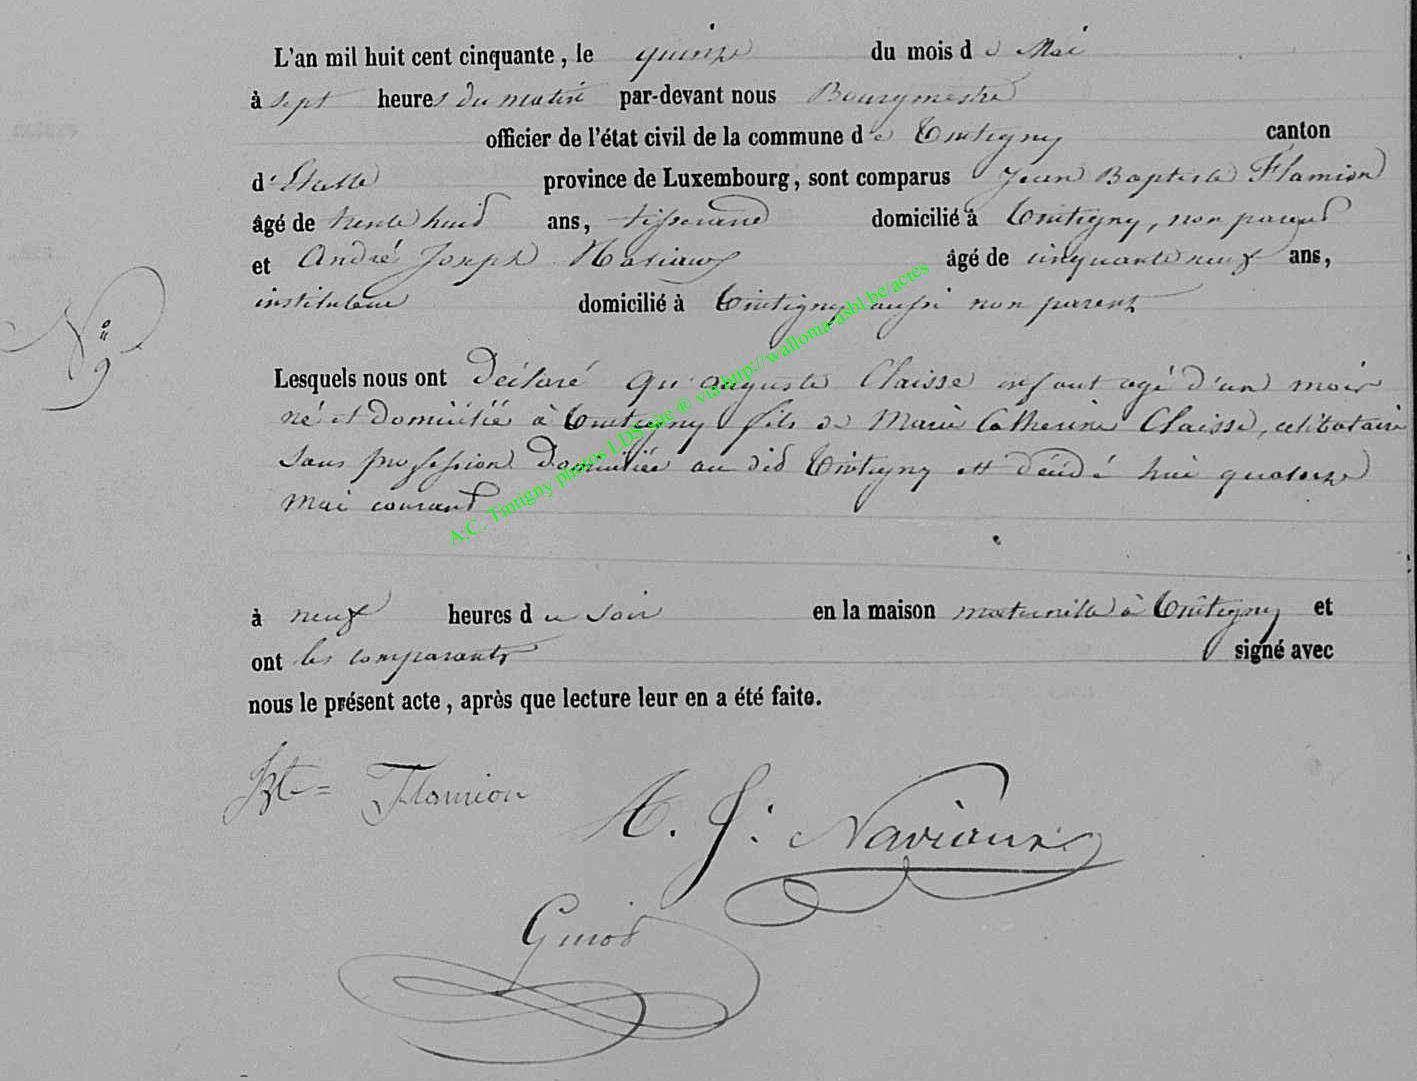 L'an mil huit cent cinquante, le quinze du mois de Mai
à sept heures du matin par-devant nous Bourgmestre
officier de l'état civil de la commune de Tintigny canton
d'Etalle province de Luxembourg, sont comparus Jean Baptiste Flamion
âgé de trente huit ans, tisserand domicilié à Tintigny, non parent
et André Joseph Naviaux âgé de cinquante neuf ans,
instituteur domicilié à Tintigny aussi non parent
N° 9
Lesquels nous ont déclaré qu'auguste Claisse enfant agé d'un mois
né et domicilié à Tintigny fils de Marie Catherine Claisse, celibataire
sans profession domiciliée au did Tintigny est décédé hier quatorze
mai courant
à neuf heures du soir en la maison maternelle à Tintigny et
ont les comparants signé avec
nous le présent acte, après que lecture leur en a été faite.
Bte= Flamion
A. J: Naviaux
A.C. Tintigny photos LDS site ® via http://wallonia-asbl.be/actes